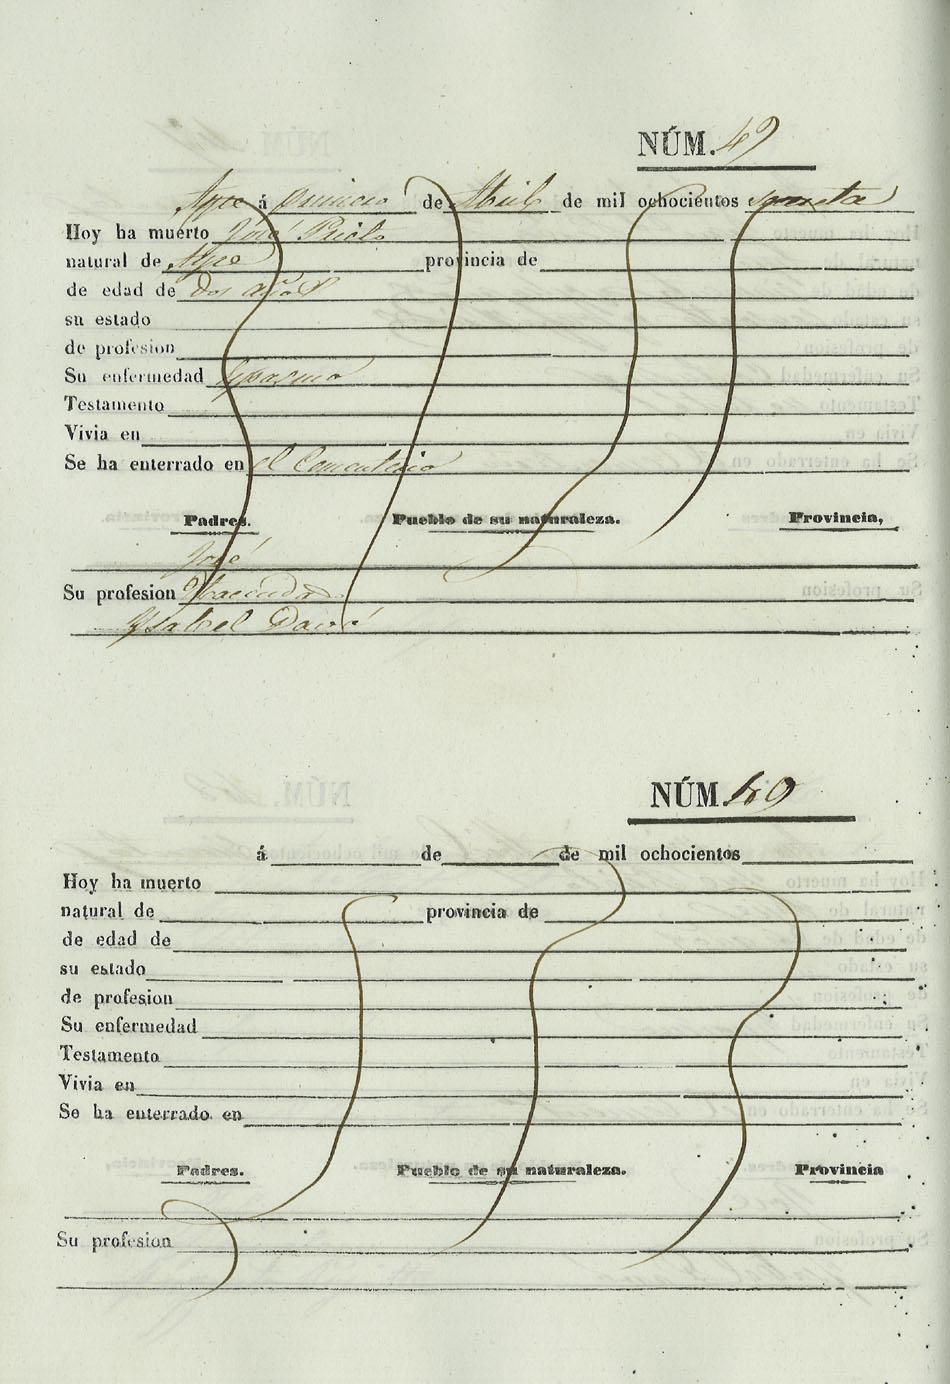 NÚM. 49
á primero de Abril de mil ochocientos
Hoy ha muerto José
natural de provincia de
de edad de Dos años
su estado
de profesion
Su enfermedad Espasmo
Testamento
Vivia en
Se ha enterrado en el Cementerio
Padres. Pueblo de su naturaleza. Provincia,
José
Su profesion Hacendado
Ysabel
NÚM.
á de de mil ochocientos
Hoy ha muerto
natural de provincia de
de edad de
su estado
de profesion
Su enfermedad
Testamento
Vivia en
Se ha enterrado en
Padres. Pueblo de su naturaleza. Provincia
Su profesion